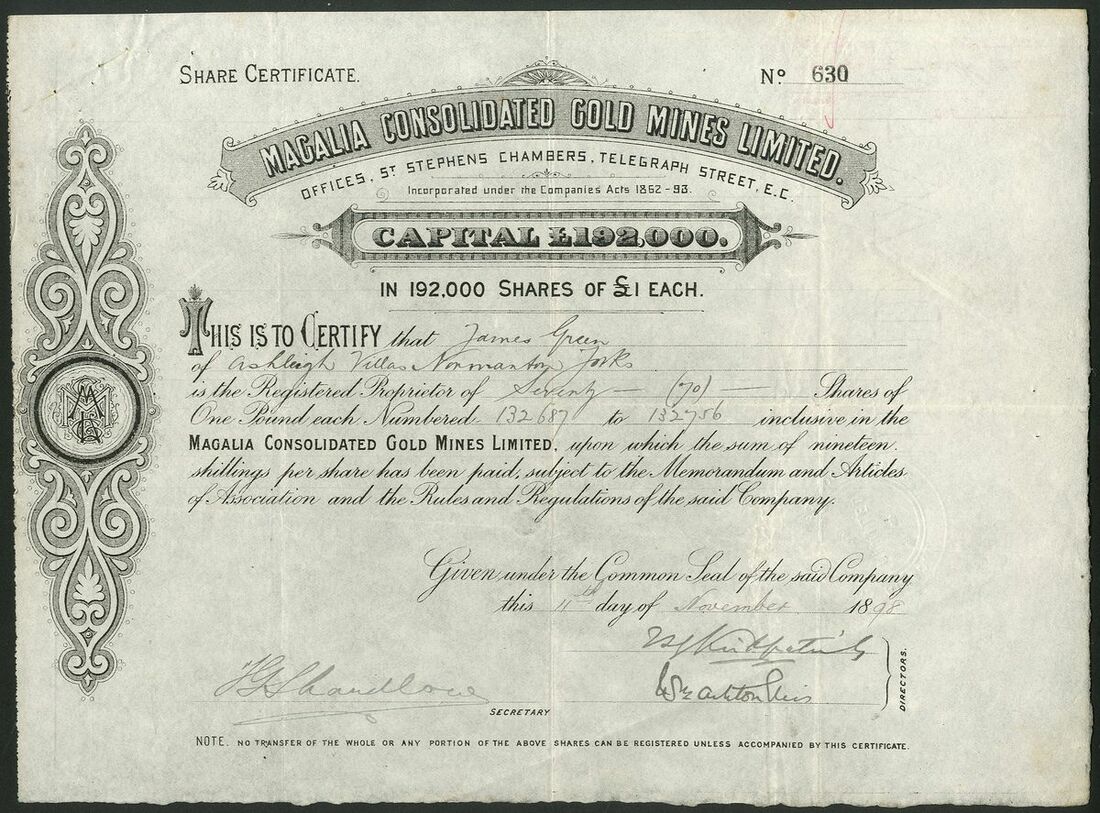 SHARE CERTIFICATE.
Nº 630
MAGALIA CONSOLIDATED GOLD MINES LIMITED.
OFFICES, ST STEPHENS CHAMBERS, TELEGRAPH STREET, E.C.
Incorporated under the Companies Acts 1862-93.
CAPITAL £192,000.
IN 192,000 SHARES OF £1 EACH.
THIS IS TO CERTIFY that James Green
of Ashleigh Villas Normanton Yorks
is the Registered Proprietor of Seventy — (70) — Shares of
One Pound each Numbered 132687 to 132756 inclusive in the
MAGALIA CONSOLIDATED GOLD MINES LIMITED, upon which the sum of nineteen
shillings per share has been paid, subject to the Memorandum and Articles
of Association and the Rules and Regulations of the said Company.
Given under the Common Seal of the said Company
this 11th day of November 1898
Kirkpatrick
DIRECTORS.
SECRETARY
NOTE. NO TRANSFER OF THE WHOLE OR ANY PORTION OF THE ABOVE SHARES CAN BE REGISTERED UNLESS ACCOMPANIED BY THIS CERTIFICATE.